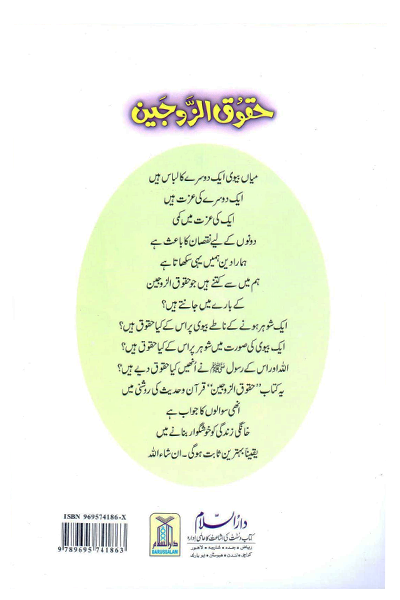 حقوق الزّوجَین
میاں بیوی ایک دوسرے کا لباس ہیں
ایک دوسرے کی عزت ہیں
ایک کی عزت میں کمی
دونوں کے لیے نقصان کا باعث ہے
ہمارا دین ہمیں یہی سکھاتا ہے
ہم میں سے کتنے ہیں جو حقوق الزوجین
کے بارے میں جانتے ہیں؟
ایک شوہر ہونے کے ناطے بیوی پر اس کے کیا حقوق ہیں؟
ایک بیوی کی صورت میں شوہر پر اس کے کیا حقوق ہیں؟
اللہ اور اس کے رسول ﷺ نے انھیں کیا حقوق دیے ہیں؟
یہ کتاب "حقوق الزوجین" قرآن و حدیث کی روشنی میں
انھی سوالوں کا جواب ہے
خانگی زندگی کو خوشگوار بنانے میں
یقیناً بہترین ثابت ہوگی۔ ان شاء اللہ
ISBN 969574186-X
9 789695 741863
دارالسلام
DARUSSALAM
دارالسلام
کتاب و سنت کی اشاعت کا عالمی ادارہ
ریاض • جدہ • شارجہ • لاہور
کراچی • لندن • ہیوسٹن • نیو یارک